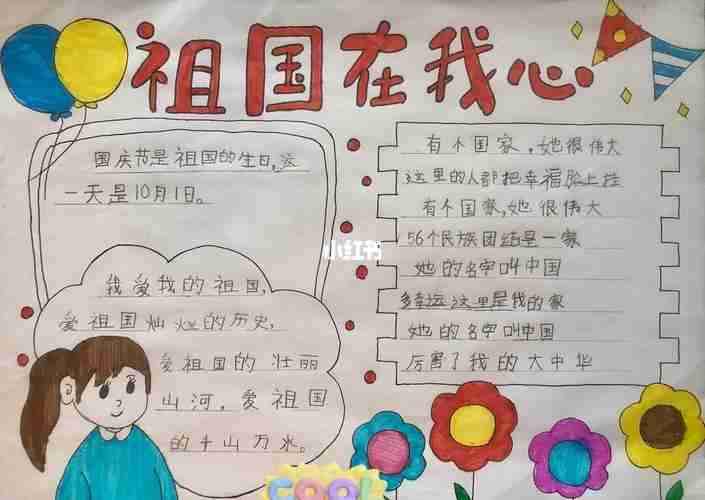 祖国在我心
国庆节是祖国的生日,这
一天是10月1日。
我爱我的祖国,
爱祖国灿烂的历史,
爱祖国的壮丽
山河,爱祖国
的千山万水。
有个国家,她很伟大
这里的人都把幸福脸上挂
有个国家,她很伟大
56个民族团结是一家
她的名字叫中国
多幸运这里是我的家
她的名字叫中国
厉害了我的大中华
小红书
COOL